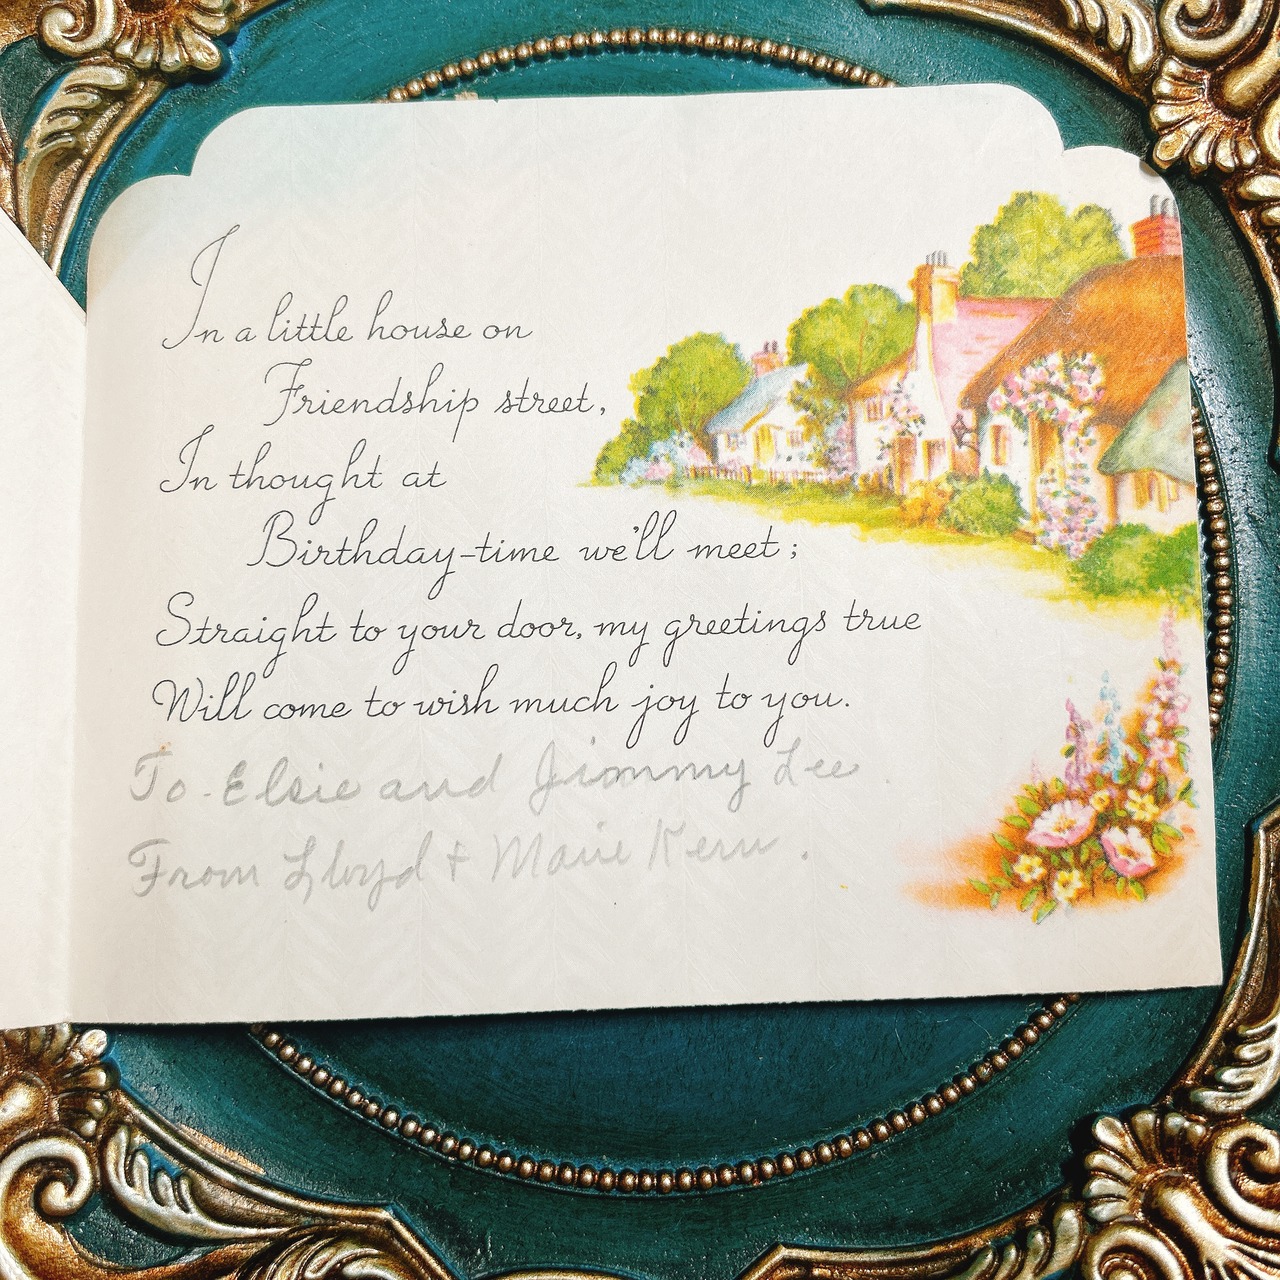 In a little house on
Friendship street,
In thought at
Birthday-time we'll meet;
Straight to your door, my greetings true
Will come to wish much joy to you.
To Elsie and Jimmy Lee.
From Lloyd + Marie Kern.